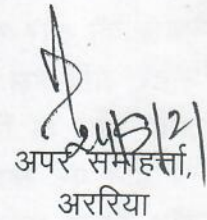 24/3/21
अपर समाहर्त्ता,
अररिया